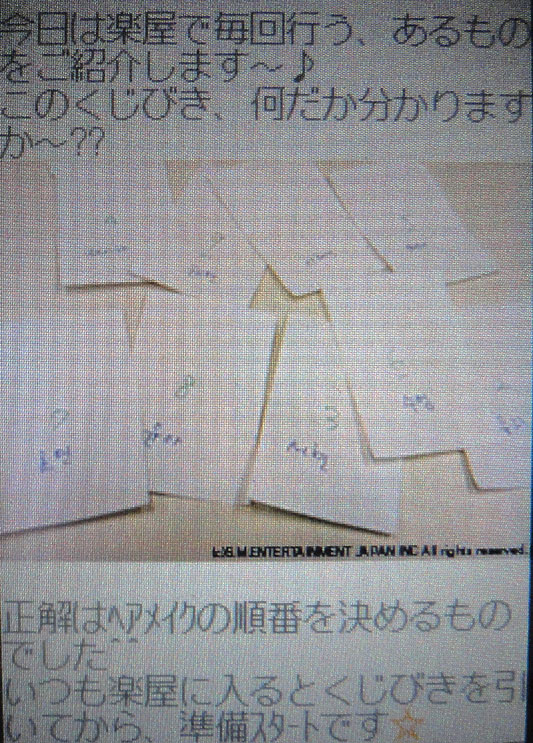 今日は楽屋で毎回行う、あるもの
をご紹介します～♪
このくじびき、何だか分かります
か～??
7
8
3
(c)S.M.ENTERTAINMENT JAPAN INC All rights reserved.
正解はﾍｱﾒｲｸの順番を決めるもの
でした^^
いつも楽屋に入るとくじびきを引
いてから、準備ｽﾀｰﾄです☆